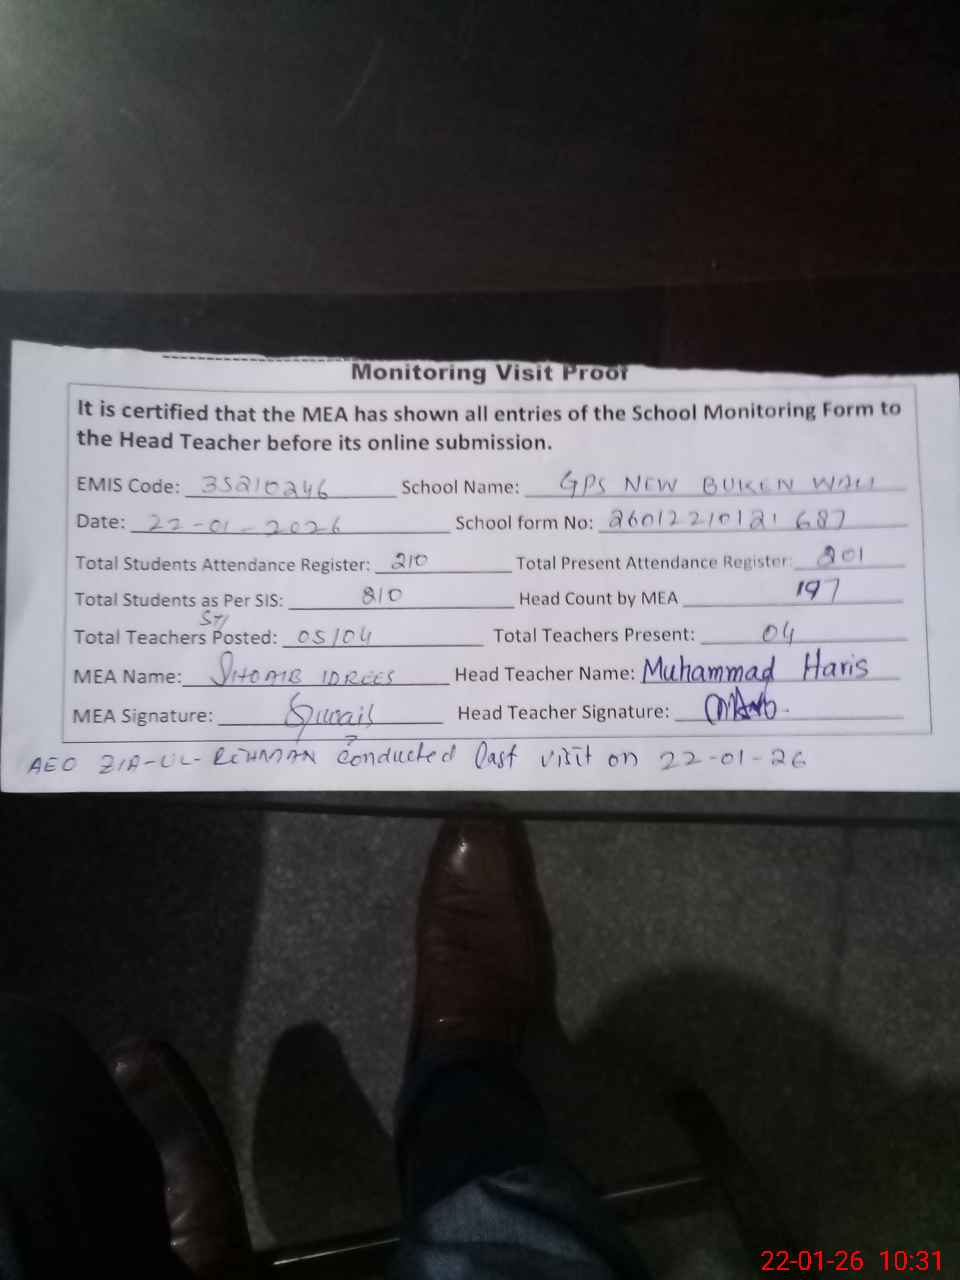 Monitoring Visit Proof
It is certified that the MEA has shown all entries of the School Monitoring Form to
the Head Teacher before its online submission.
EMIS Code: 35210246 School Name: GPS NEW BUKEN WALI
Date: 22-01-2026 School form No: 26012210121687
Total Students Attendance Register: 210 Total Present Attendance Register: 201
Total Students as Per SIS: 210 Head Count by MEA 197
Total Teachers Posted: 05/04 Total Teachers Present: 04
MEA Name: SHOAIB IDREES Head Teacher Name: Muhammad Haris
MEA Signature: Head Teacher Signature:
AEO ZIA-UL-REHMAN Conducted last visit on 22-01-26
22-01-26 10:31